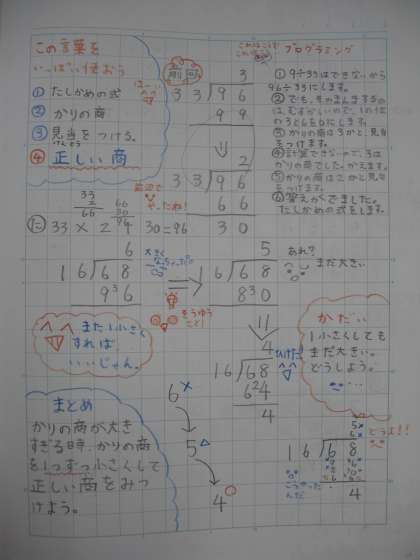 この言葉を
いっぱい使おう
① たしかめの式
② かりの商
③ 見当をつける。
けんとう
④ 正しい商
3
33)96
99
⇓
2
33)96
66
30
プログラミング
① 9÷33はできないから
96÷33にします。
をつけます。
かりの商でした。かえます。
⑤ かりの商は2かと見当
をつけます。
⑥ 答えがでました。
たしかめの式をします。
33
2
66
66
30
96
やったね!
た 33×2 30=96
6
16)68
96
⇒
5
16)68
80
あれ?
まだ大きい
そうゆう
こと!
⇓
4
16)68
64
4
また1小さく
すれば、
いいじゃん。
かだい
1小さくしても
まだ大きい。
どうしよう。
6×
5△
4○
まとめ
かりの商が大き
すぎる時、かりの商
を1つずつ小さくして
正しい商をみつ
けよう。
どうよ!!
5×
6×
16)68
4